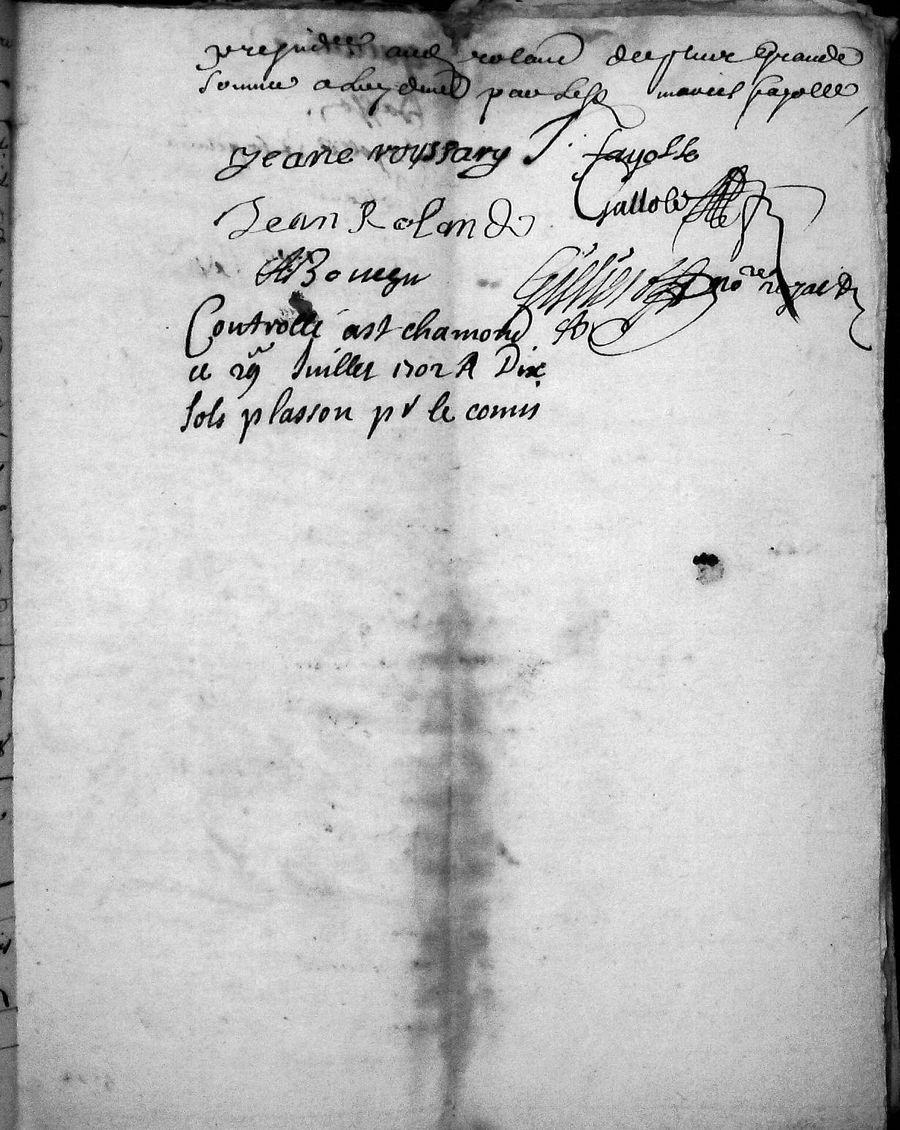 prejudice aud roland de plus grande
somme a luy deue par led marcel fayolle
Jeane roussary J. fayolle
Gallole
Jean Rolande
Gillier no.re royal
Controllé a st chamond
ce 29 Juillet 1702 R Dix
sols plasson pr le comis